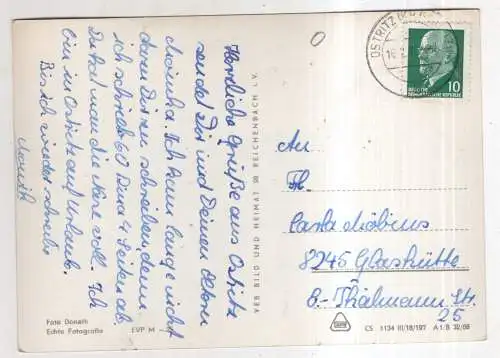 Herzliche Grüße aus Ostritz
sendet Dir und Deinen Eltern
Monika. Ich kam lange nicht
dazu Dir zu schreiben, denn
ich schrieb 60 Dina 4 Seiten ab.
Da hat man die Nase voll. Ich
bin in Ostritz auf Urlaub.
Bis ich wieder schreibe
Monika
Foto Donath
Echte Fotografie
EVP M
VEB BILD UND HEIMAT REICHENBACH I. V.
OSTRITZ
10
DEUTSCHE
DEMOKRATISCHE REPUBLIK
An
Frl.
Carla Möbius
8245 Glashütte
E.-Thälmann Str.
25
CS 1134 III/18/197 A 1/B 32/68